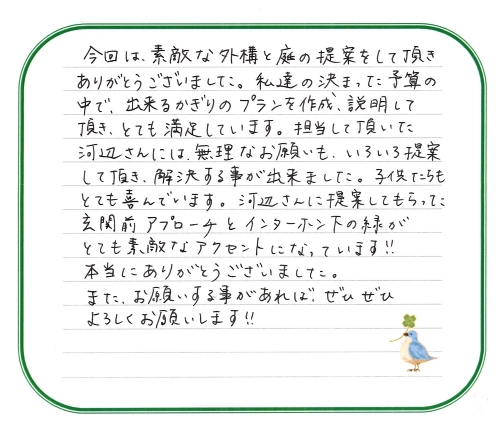 今回は、素敵な外構と庭の提案をして頂き
ありがとうございました。私達の決まった予算の
中で、出来るかぎりのプランを作成、説明して
頂き、とても満足しています。担当して頂いた
河辺さんには、無理なお願いも、いろいろ提案
して頂き、解決する事が出来ました。子供たちも
とても喜んでいます。河辺さんに提案してもらった
玄関前アプローチとインターホン下の緑が
とても素敵なアクセントになっています!!
本当にありがとうございました。
また、お願いする事があれば、ぜひぜひ
よろしくお願いします!!